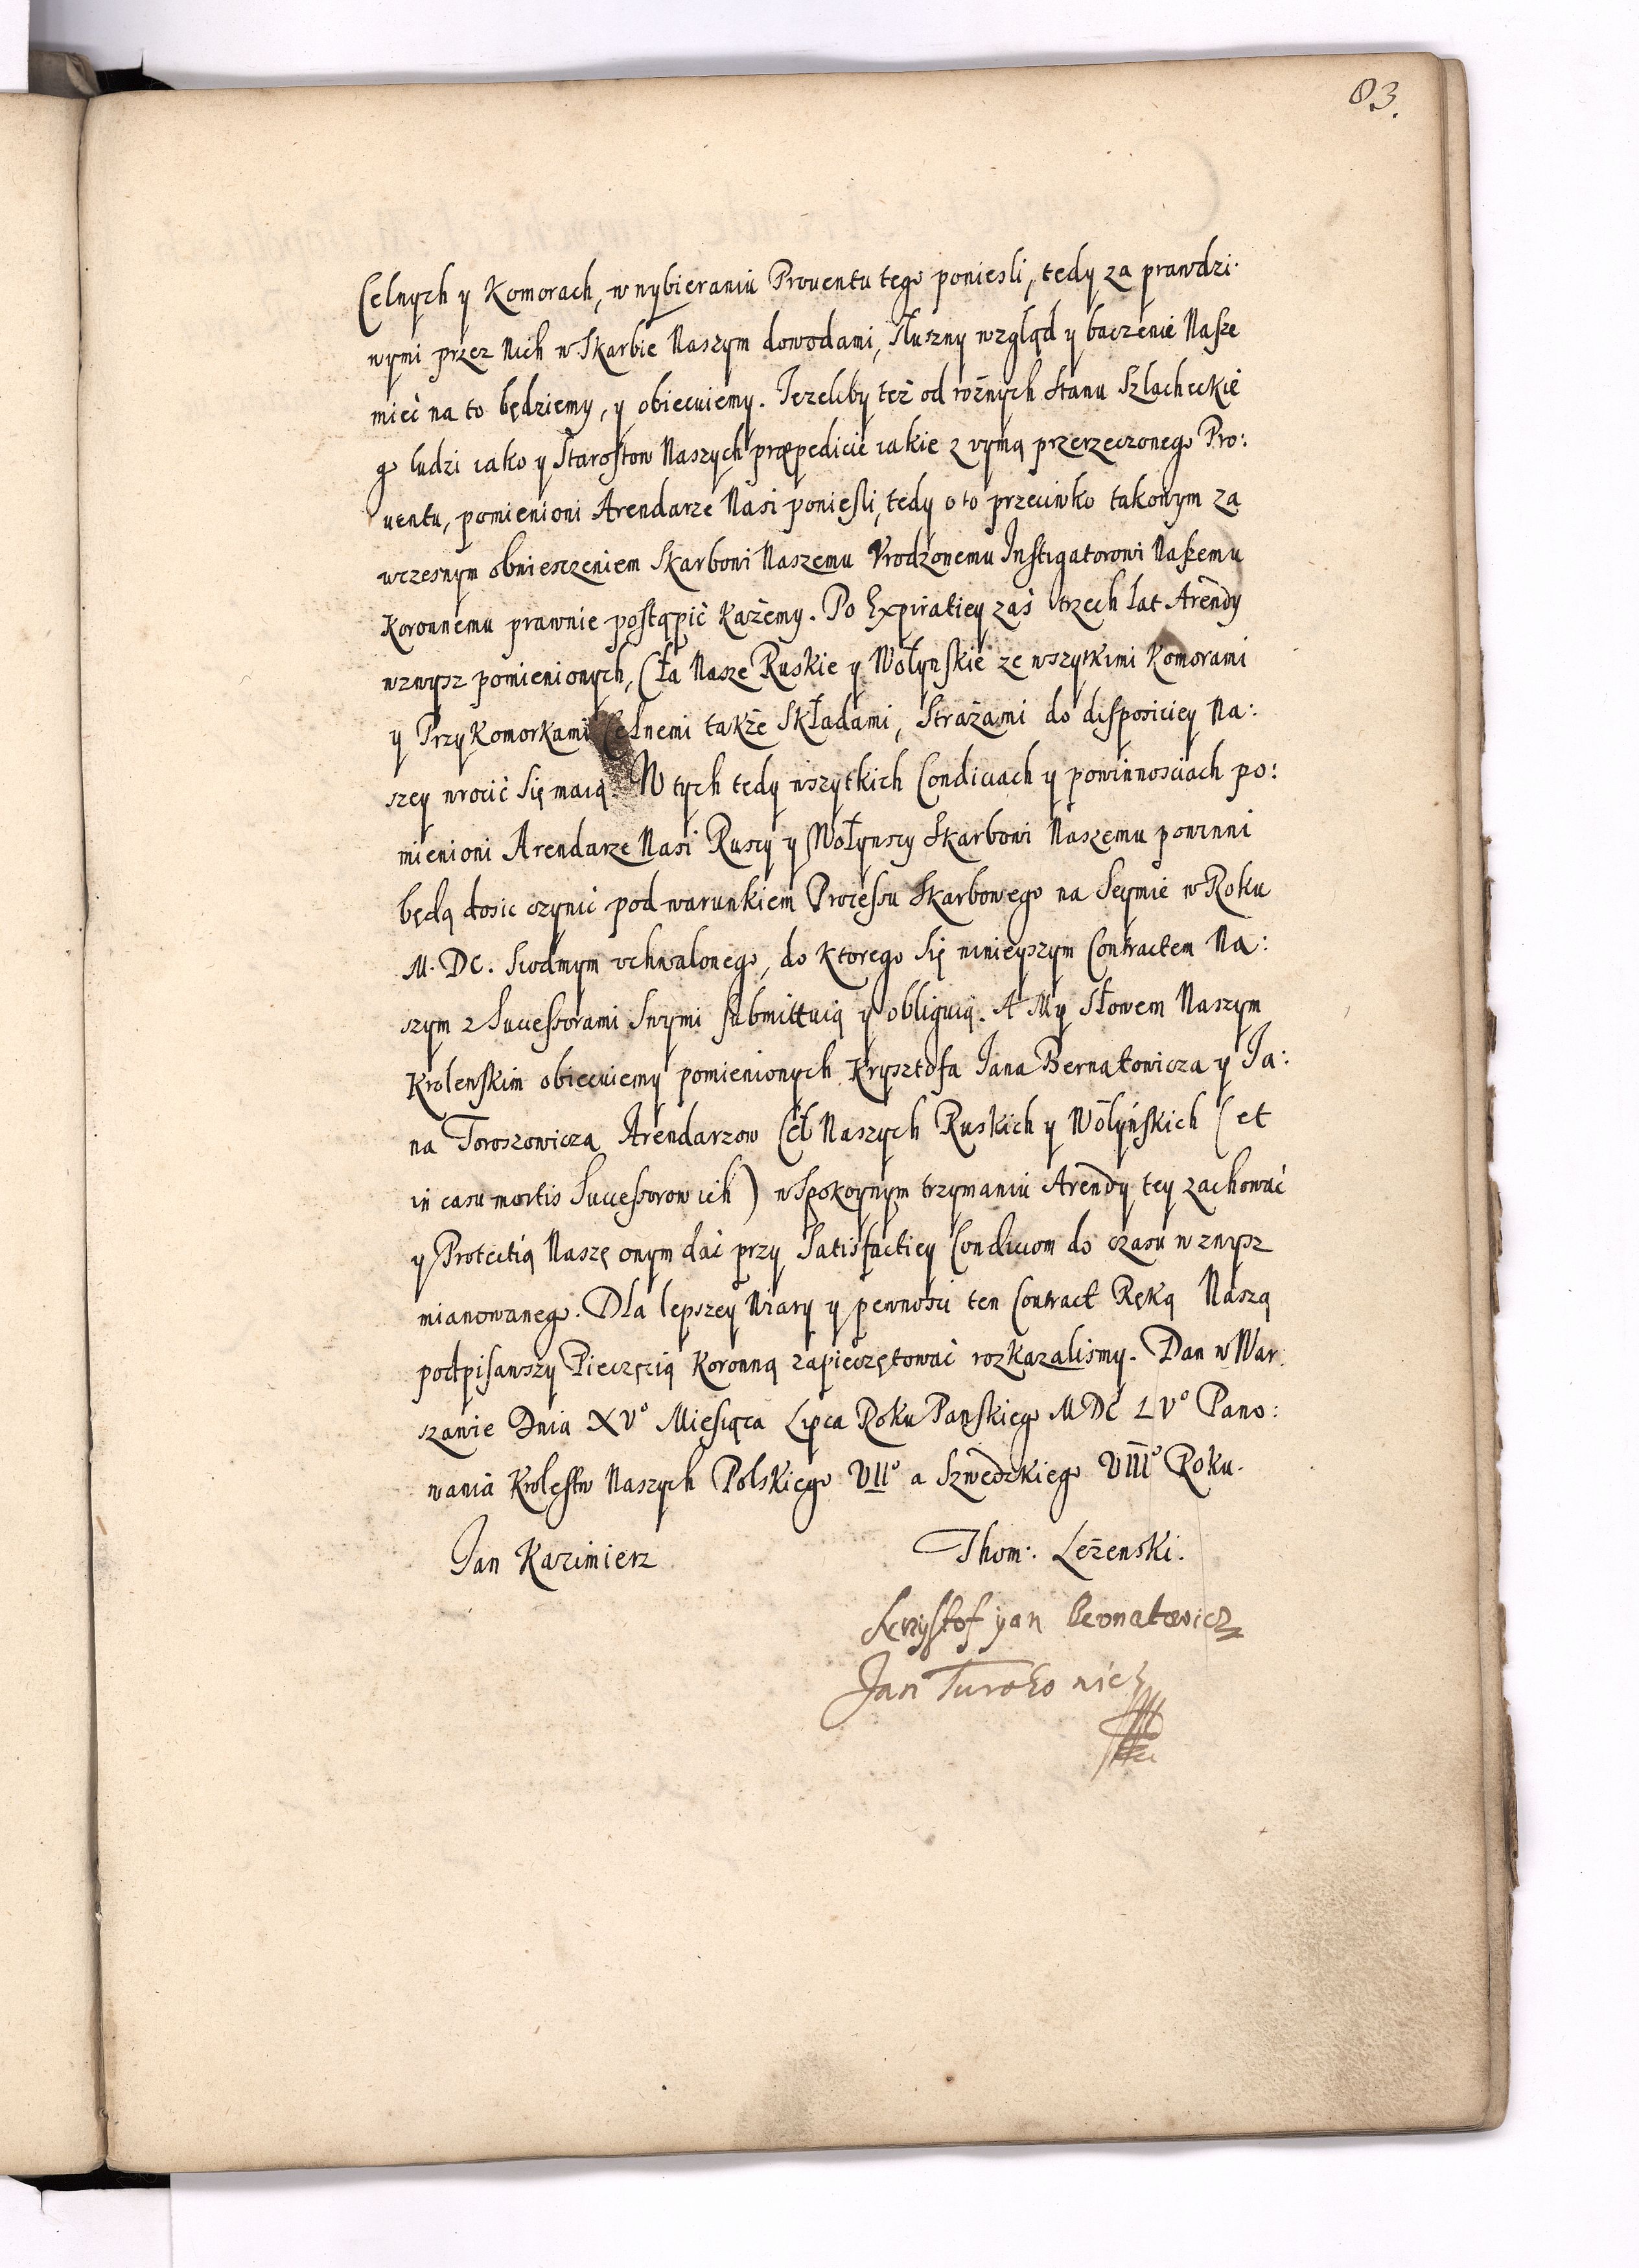 83.
Celnych y Komorach, w wybieraniu Prouentu tego poniesli, tedy za prawdzi:
wymi przez Nich w Skarbie Naszym dowodami, słuszny wzgląd y baczenie Nasze
mieć na to będziemy, y obiecuiemy. Jezeliby też od rożnych Stanu Szlacheckie
go ludzi iako y Starostow Naszych præpedicie iakie z uymą przerzeczonego Pro:
uentu, pomienioni Arendarze Nasi poniesli, tedy o to przeciwko takowym za
wczesnym obwiesczeniem Skarbowi Naszemu Vrodzonemu Instigatorowi Naszemu
Koronnemu prawnie postąpić każemy. Po Expiratiey zaś trzech lat Arendy
wzwysz pomienionych, Cła Nasze Ruskie y Wołynskie ze wszytkimi Komorami
y Przykomorkami Celnemi także Składami, Strażami do disposiciey Na:
szey wrocić się maią. W tych tedy wszytkich Condiciach y powinnosciach po:
mienioni Arendarze Nasi Ruscy y Wołynscy Skarbowi Naszemu powinni
będą dosic czynić pod warunkiem Processu Skarbowego na Seymie w Roku
M. DC. Siodmym vchwalonego, do Ktorego się ninieyszym Contractem Na:
szym z Successorami Swymi submittuią y obliguią. A My Słowem Naszym
Krolewskim obiecuiemy pomienionych Krysztofa Jana Bernatowicza y Ja:
na Toroszowicza Arendarzow Ceł Naszych Ruskich y Wołyńskich (et
in casu mortis Successorow ich) w spokoynym trzymaniu Arendy tey zachować
y Protectią Naszę onym dać przy Satisfactiey Condiciom do czasu wzwysz
mianowanego. Dla lepszey Wiary y pewnosci ten Contract Ręką Naszą
podpisawszy Pieczęcią Koronną zapieczętować rozkazalismy. Dan w War:
szawie Dnia XV° Miesiąca Lipca Roku Panskiego MDC LV° Pano:
wania Krolestw Naszych Polskiego VII° a Szwedzkiego VIII° Roku.
Jan Kazimierz
Thom: Leżenski.
Krzysztof yan Bernatowicz
Jan Turoszowicz